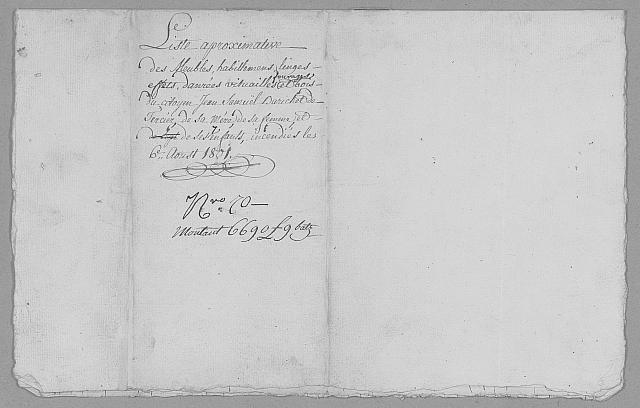 Liste aproximative
des Meubles, habillemens, linges
effets, danrées victuailles fourages et bois
du citoyen Jean Samuel Durichet de
Tercier, de sa Mére, de sa femme, et
de ses Enfants, incendiés les
6e. Aoust 1801.
Nro. 70
Montant 6690 £ 9 batz